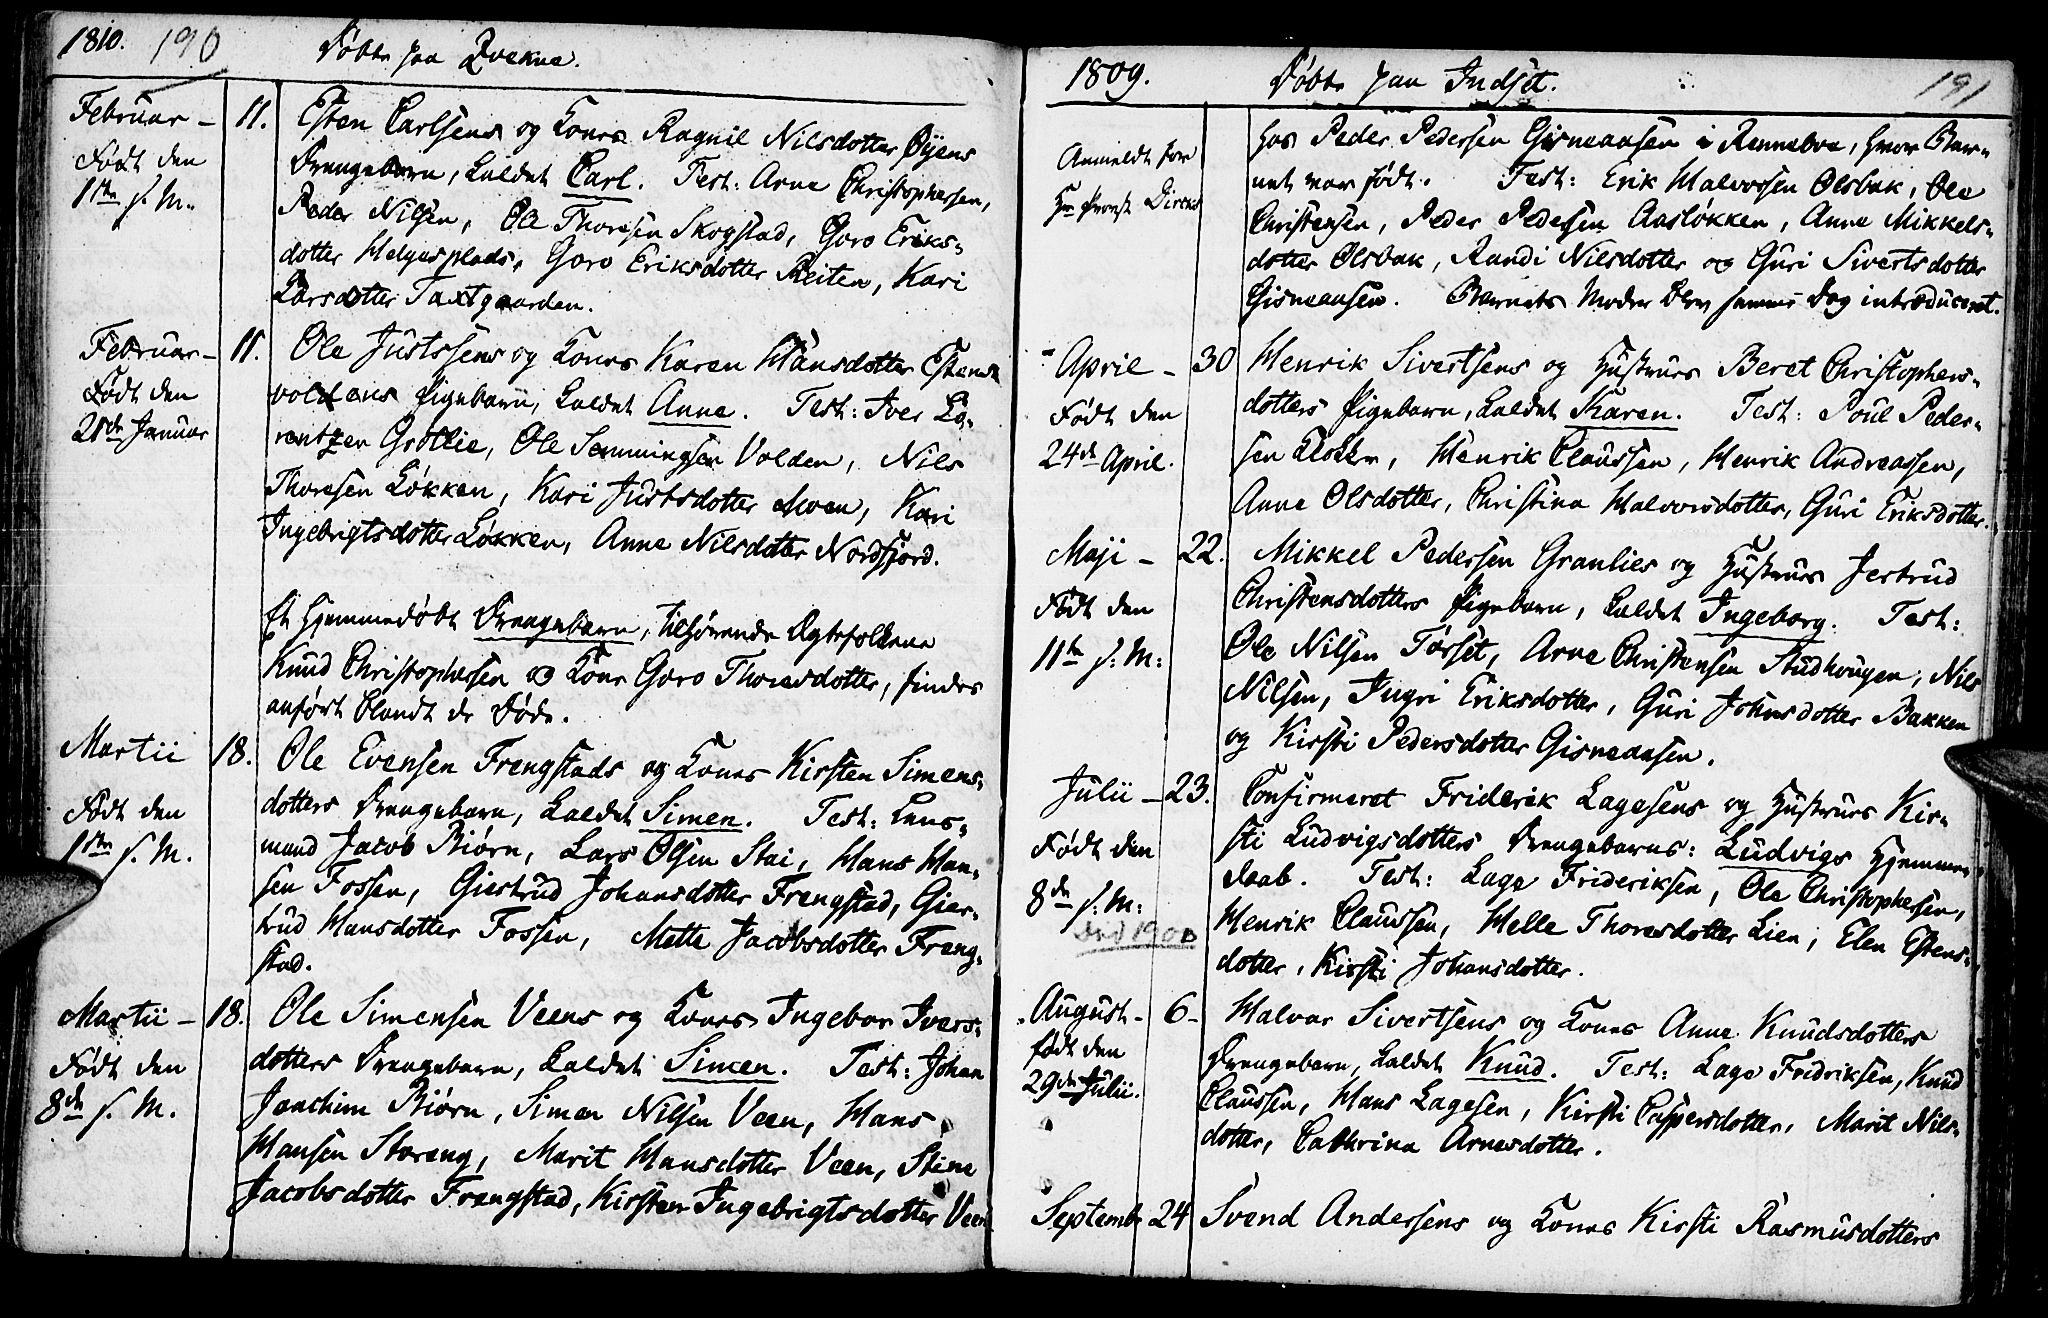 1810. 190 Døbte paa Qvekne.
Februar – 11. Esten Carlsens og Kones Ragnil Nilsdotter Øyens
Født den Drengebarn, kaldet Carl. Test: Arne Christophersen,
1ste s. M. Peder Nilsen, Ole Thoresen Skogstad, Goro Eriks-
dotter Helgesplads, Goro Eriksdotter Reiten, Kari
Larsdotter Taxtgaarden.
Februar – 11. Ole Justsens og Kones Karen Hansdotter Estens-
Født den voldens Pigebarn, kaldet Anne. Test: Iver Lo-
21de Januar rentzen Grøtlie, Ole Semmingsen Volden, Nils
Thoresen Løkken, Kari Justsdotter Moen, Kari
Ingebrigtsdotter Løkken, Anne Nilsdotter Nordfjord.
Et hjemmedøbt Drengebarn, tilhørende Ægtefolkene
Knud Christophersen og Kone Goro Thoresdotter, findes
anført blandt de Døde.
Martii 18. Ole Evensen Frengstads og Kones Kirsten Simens-
Født den dotters Drengebarn, kaldet Simen. Test: Lens-
1ste s. M. mand Jacob Biørn, Lars Olsen Stai, Hans Han-
sen Fossen, Giertrud Johansdotter Frengstad, Gier-
trud Hansdotter Fossen, Mette Jacobsdotter Freng-
stad.
Martii – 18. Ole Simensen Veens og Kones Ingebor Ivers-
Født den dotters Drengebarn, kaldet Simen. Test: Johan
8de s. M. Joachim Biørn, Simen Nilsen Veen, Hans
Hansen Storeng, Marit Hansdotter Veen, Stine
Jacobsdotter Frengstad, Kirsten Ingebrigtsdotter Veen
1809. Døbte paa Indset. 191
hos Peder Pedersen Gisneaasen i Renneboe, hvor Bar-
Anmeldt for net var født. Test: Erik Halvorsen Olsbak, Ole
Hr Provst Christensen, Peder Pedersen Aasløkken, Anne Mikkels-
dotter Olsbak, Randi Nilsdotter og Guri Sivertsdotter
Gisneaasen. Barnets Moder blev samme Dag introduceret.
April – 30 Henrik Sivertsens og Hustrues Beret Christophers-
Født den dotters Pigebarn, kaldet Karen. Test: Poul Peder-
24de April. sen Klokker, Henrik Claussen, Henrik Andreassen,
Anne Olsdotter, Christina Halvorsdotter, Guri Eriksdotter.
Maji – 22. Mikkel Pedersen Granlies og Hustrues Jertrud
Født den Christensdotters Pigebarn, kaldet Ingeborg. Test:
11te s: M: Ole Nilsen Tørset, Arne Christensen Studhougen, Nils
Nilsen, Ingri Eriksdotter, Guri Johnsdotter Bakken
og Kirsti Pedersdotter Gisneaasen.
Julii – 23. Confirmeret Friderik Lagesens og Hustrues Kir-
Født den sti Ludvigsdotters Drengebarns: Ludvigs Hjemme-
8de s: M: daab. Test: Lage Frideriksen, Ole Christophersen,
Henrik Claussen, Helle Thoresdotter Lien, Elen Estens-
dotter, Kirsti Johansdotter.
August – 6 – Halvor Sivertsens og Kones Anne Knudsdotters
født den Drengebarn, kaldet Knud. Test: Lage Fredriksen, Knud
29de Julii. Claussen, Hans Lagesen, Kirsti Caspersdotter, Marit Nils-
dotter, Cathrina Arnesdotter.
Septembr 24 Svend Andersens og Kones Kirsti Rasmusdotters